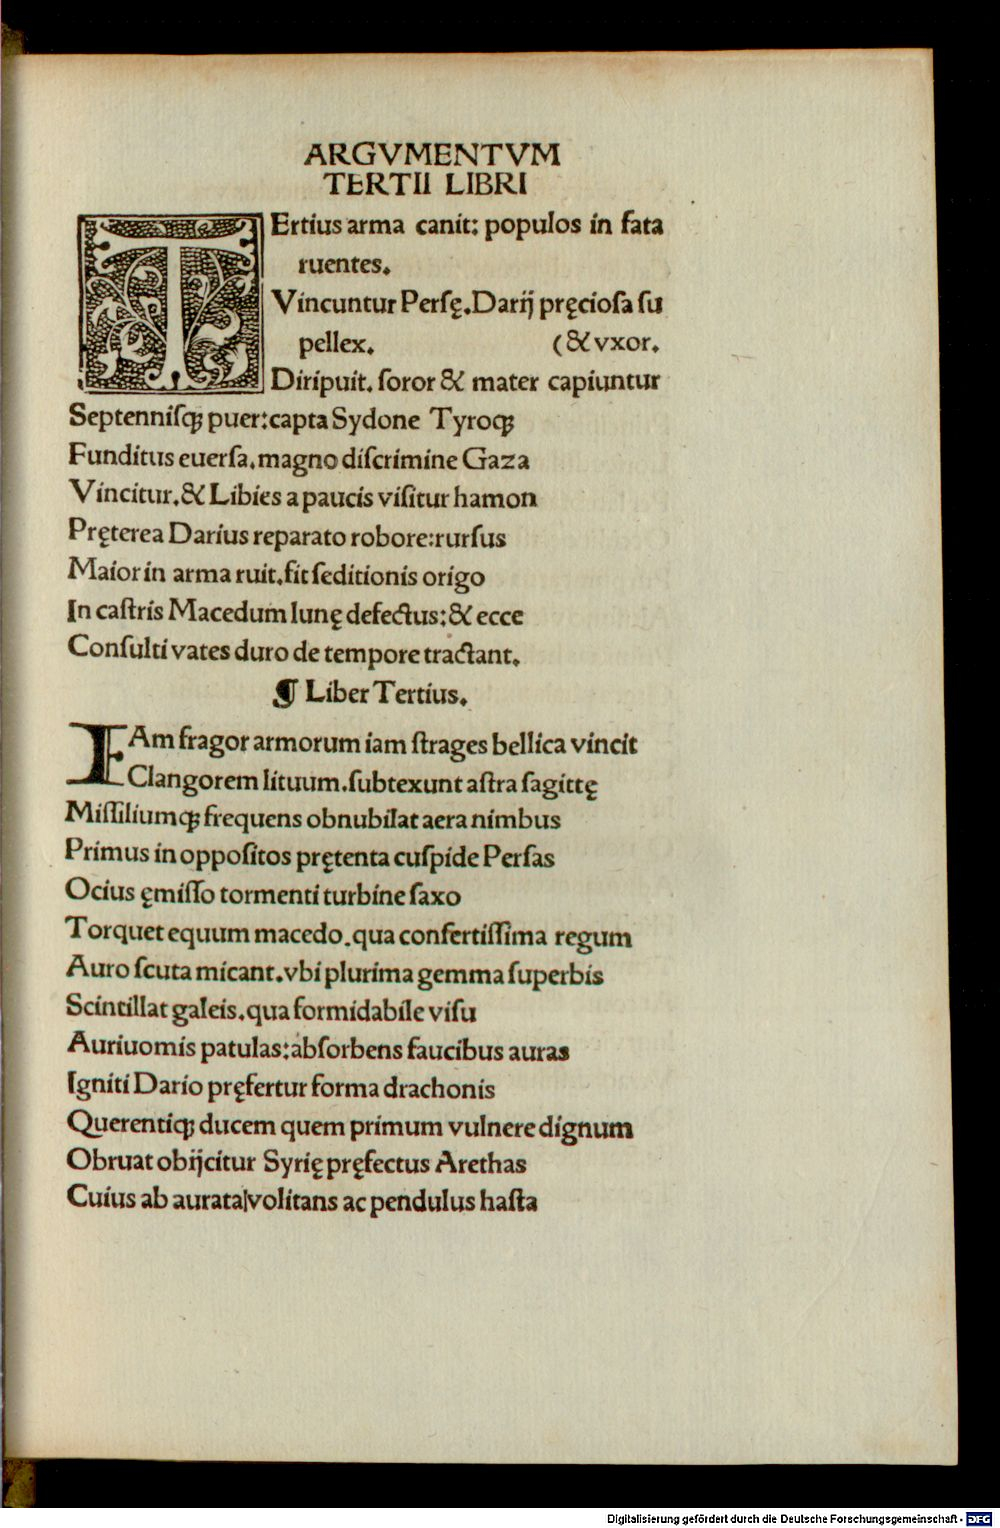 ARGVMENTVM
TERTII LIBRI
TErtius arma canit: populos in fata
ruentes.
Vincuntur Persę. Darij pręciosa su
pellex. (& vxor.
Diripuit. soror & mater capiuntur
Septennisq; puer: capta Sydone Tyroq;
Funditus euersa. magno discrimine Gaza
Vincitur. & Libies a paucis visitur hamon
Pręterea Darius reparato robore: rursus
Maior in arma ruit. fit seditionis origo
In castris Macedum lunę defectus: & ecce
Consulti vates duro de tempore tractant.
¶ Liber Tertius.
IAm fragor armorum iam strages bellica vincit
Clangorem lituum. subtexunt astra sagittę
Missiliumq; frequens obnubilat aera nimbus
Primus in oppositos prętenta cuspide Persas
Ocius ęmisso tormenti turbine saxo
Torquet equum macedo. qua confertissima regum
Auro scuta micant. vbi plurima gemma superbis
Scintillat galeis. qua formidabile visu
Auriuomis patulas: absorbens faucibus auras
Igniti Dario pręfertur forma drachonis
Querentiq; ducem quem primum vulnere dignum
Obruat obijcitur Syrię pręfectus Arethas
Cuius ab aurata|volitans ac pendulus hasta
Digitalisierung gefördert durch die Deutsche Forschungsgemeinschaft - DFG